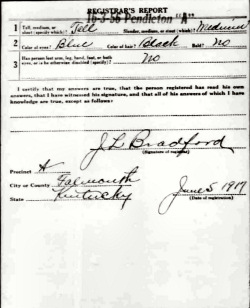 REGISTRAR'S REPORT
16-3-56 Pendleton "A"
1 Tall, medium, or short (specify which)? Tall Slender, medium, or stout (which)? Medium
2 Color of eyes? Blue Color of hair? Black Bald? No
3 Has person lost arm, leg, hand, foot, or both eyes, or is he otherwise disabled (specify)? No
I certify that my answers are true, that the person registered has read his own answers, that I have witnessed his signature, and that all of his answers of which I have knowledge are true, except as follows:
J. L. Bradford
(Signature of registrar)
Precinct A
City or County Falmouth
State Kentucky
June 5 1917
(Date of registration)